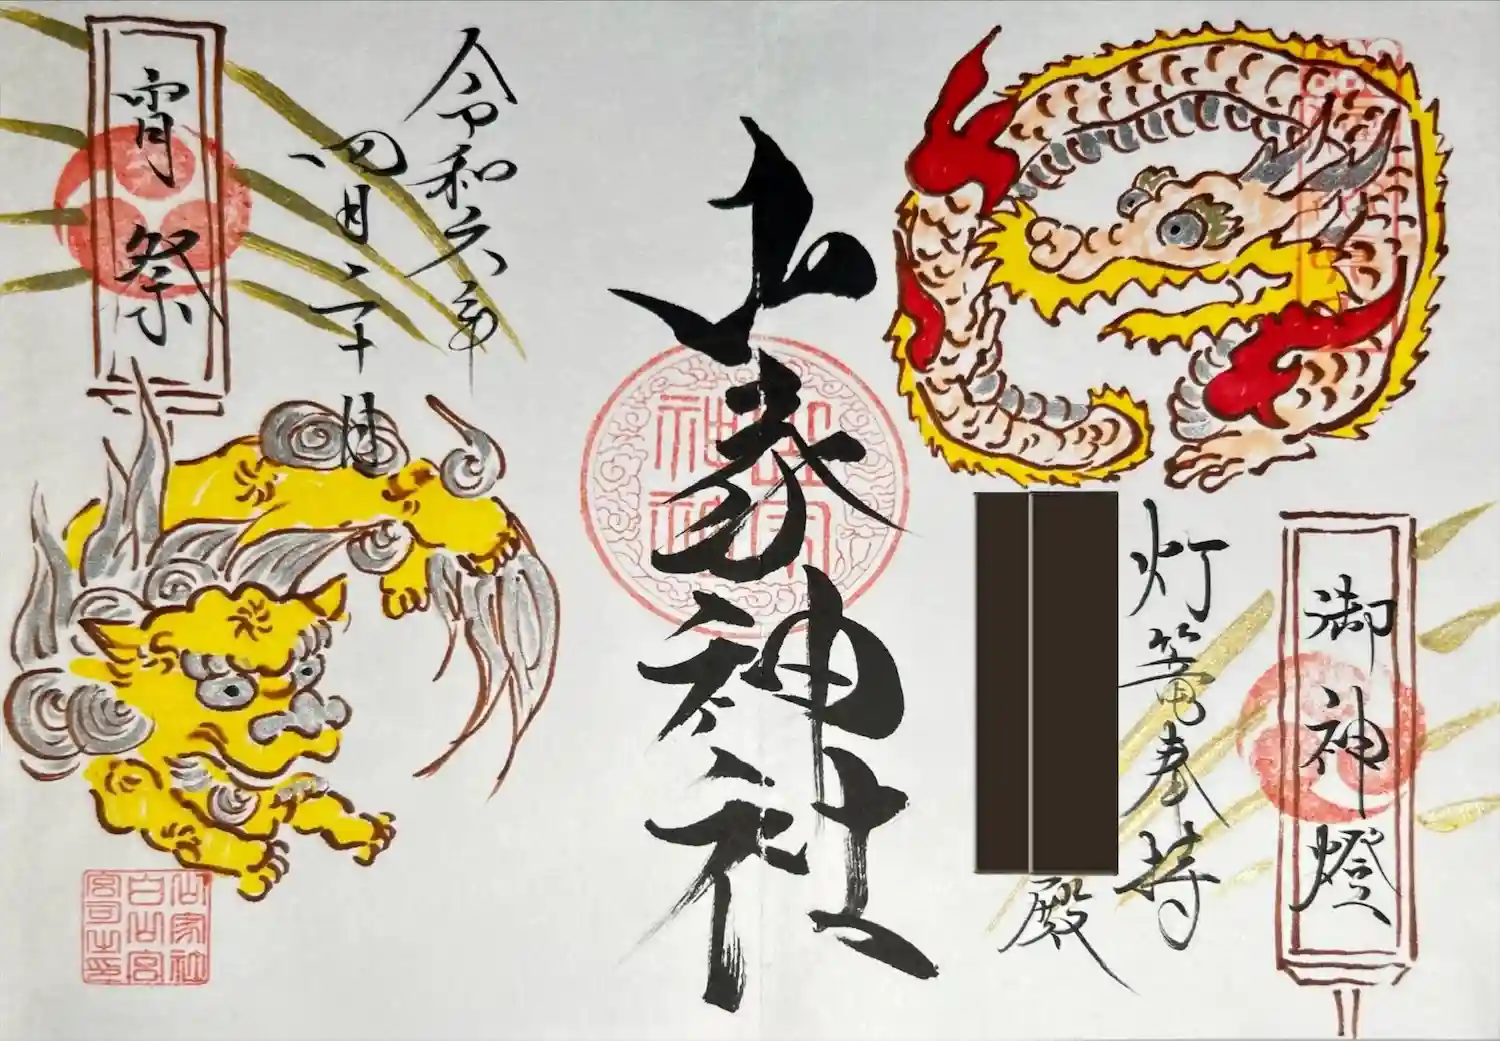 御神燈
灯篭奉持
殿
山家神社
令和六年
四月二十日
宵祭
山家社
白山宮
宮司之印